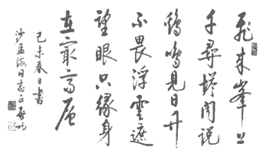 飛来峯上
千尋塔聞說
鷄鳴見日升
不畏浮雲遮
望眼只緣身
在最高層
己未春日書
沙孟海同志